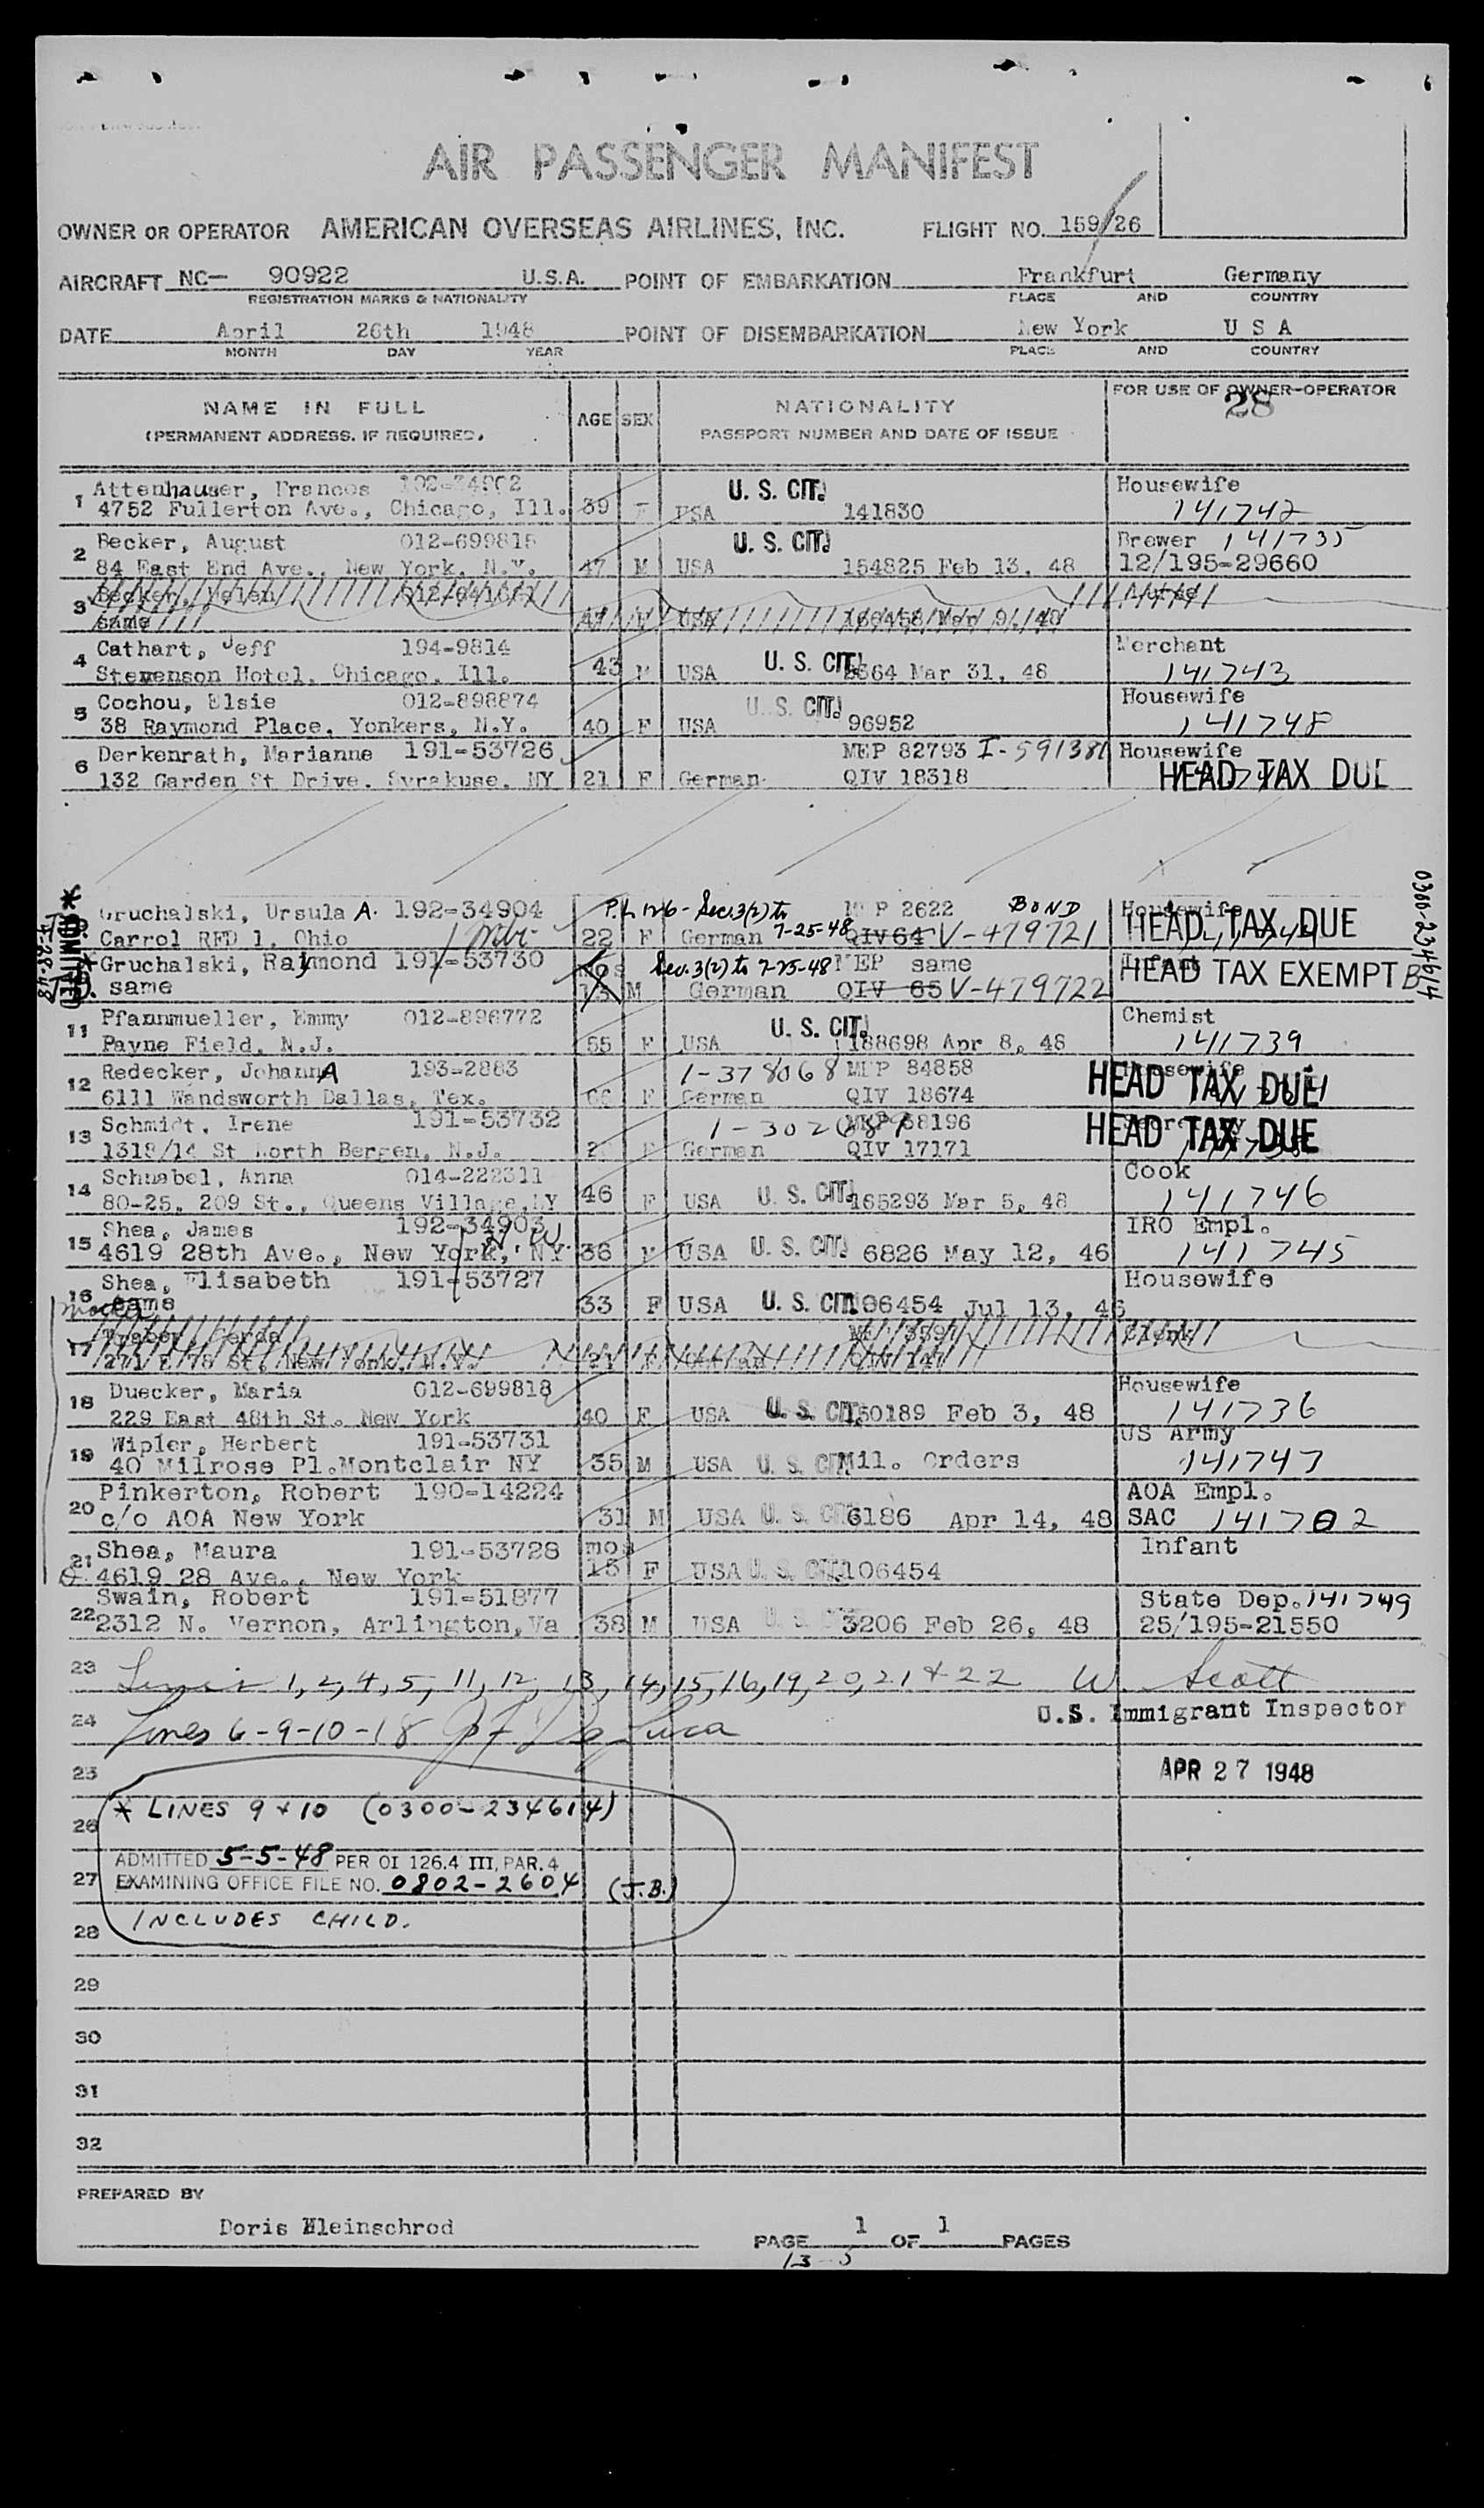 AIR PASSENGER MANIFEST
OWNER OR OPERATOR AMERICAN OVERSEAS AIRLINES, INC. FLIGHT NO. 159/26
AIRCRAFT NC— 90922 U.S.A. POINT OF EMBARKATION Frankfurt Germany
REGISTRATION MARKS & NATIONALITY PLACE AND COUNTRY
DATE April 26th 1948 POINT OF DISEMBARKATION New York U S A
MONTH DAY YEAR PLACE AND COUNTRY
NAME IN FULL AGE SEX NATIONALITY FOR USE OF OWNER-OPERATOR
(PERMANENT ADDRESS, IF REQUIRED) PASSPORT NUMBER AND DATE OF ISSUE 28
1 Attenhauser, Frances U. S. CIT. Housewife
4752 Fullerton Ave., Chicago, Ill. 39 F USA 141830 141742
2 Becker, August 012-699815 U. S. CIT. Brewer 141735
84 East End Ave., New York, N.Y. 47 M USA 154825 Feb 13, 48 12/195-29660
3 Becker, Helen
same 47 F USA 160458 Mar 9, 48
4 Cathart, Jeff 194-9814 Merchant
Stevenson Hotel, Chicago, Ill. 43 M USA U. S. CIT. 3564 Mar 31, 48 141743
5 Cochou, Elsie 012-898874 U. S. CIT. Housewife
38 Raymond Place, Yonkers, N.Y. 40 F USA 96952 141748
6 Derkenrath, Marianne 191-53726 MEP 82793 I-591381 Housewife
132 Garden St Drive, Syrakuse, NY 21 F German QIV 18318 HEAD TAX DUE
* ADMITTED
Gruchalski, Ursula A. 192-34904 P.L. 126 - Sec. 3(2) to MEP 2622 BOND Housewife
Carrol RFD 1, Ohio 22 F German 7-25-48 QIV 64 V-479721 HEAD TAX DUE
0300-234614
* Gruchalski, Raymond 191-53730 mos Sec. 3(2) to 7-25-48 MEP same Infant
same 13 M German QIV 65 V-479722 HEAD TAX EXEMPT
11 Pfannmueller, Emmy 012-896772 U. S. CIT. Chemist
Payne Field, N.J. 55 F USA 188698 Apr 8, 48 141739
12 Redecker, Johanna 193-2883 1-378068 MEP 84858 Housewife
6111 Wandsworth Dallas, Tex. F German QIV 18674 HEAD TAX DUE
13 Schmidt, Irene 191-53732 MEP 58196 Secretary
1318/14 St North Bergen, N.J. F German QIV 17171 HEAD TAX DUE
14 Schnabel, Anna 014-222311 Cook
80-25, 209 St., Queens Village, NY 46 F USA U. S. CIT. 165293 Mar 5, 48 141746
15 Shea, James 192-34903 IRO Empl.
4619 28th Ave., New York, NY 36 M USA U. S. CIT. 6826 May 12, 46 141745
16 Shea, Elisabeth 191-53727 Housewife
same 33 F USA U. S. CIT. 106454 Jul 13, 46
17 Gerda
271 E 78 St, New York, N.Y.
18 Duecker, Maria 012-699818 Housewife
229 East 48th St. New York 40 F USA U. S. CIT. 150189 Feb 3, 48 141736
19 Wipler, Herbert 191-53731 US Army
40 Milrose Pl. Montclair NY 35 M USA U. S. CIT. Mil. Orders 141747
20 Pinkerton, Robert 190-14224 AOA Empl.
c/o AOA New York 31 M USA U. S. CIT. 6186 Apr 14, 48 SAC 141702
21 Shea, Maura 191-53728 mos Infant
4619 28 Ave., New York 13 F USA U. S. CIT. 106454
22 Swain, Robert 191-51877 State Dep. 141749
2312 N. Vernon, Arlington, Va 38 M USA U. S. 3206 Feb 26, 48 25/195-21550
23 Lines 1, 2, 4, 5, 11, 12, 13, 14, 15, 16, 19, 20, 21 + 22 W. Scott
U.S. Immigrant Inspector
24 Lines 6-9-10-18
25 APR 27 1948
26 * LINES 9 + 10 (0300-234614)
ADMITTED 5-5-48 PER OI 126.4 III, PAR. 4
27 EXAMINING OFFICE FILE NO. 0802-2604 (J.B.)
28 INCLUDES CHILD.
29
30
31
32
PREPARED BY
Doris Kleinschrod
PAGE 1 OF 1 PAGES